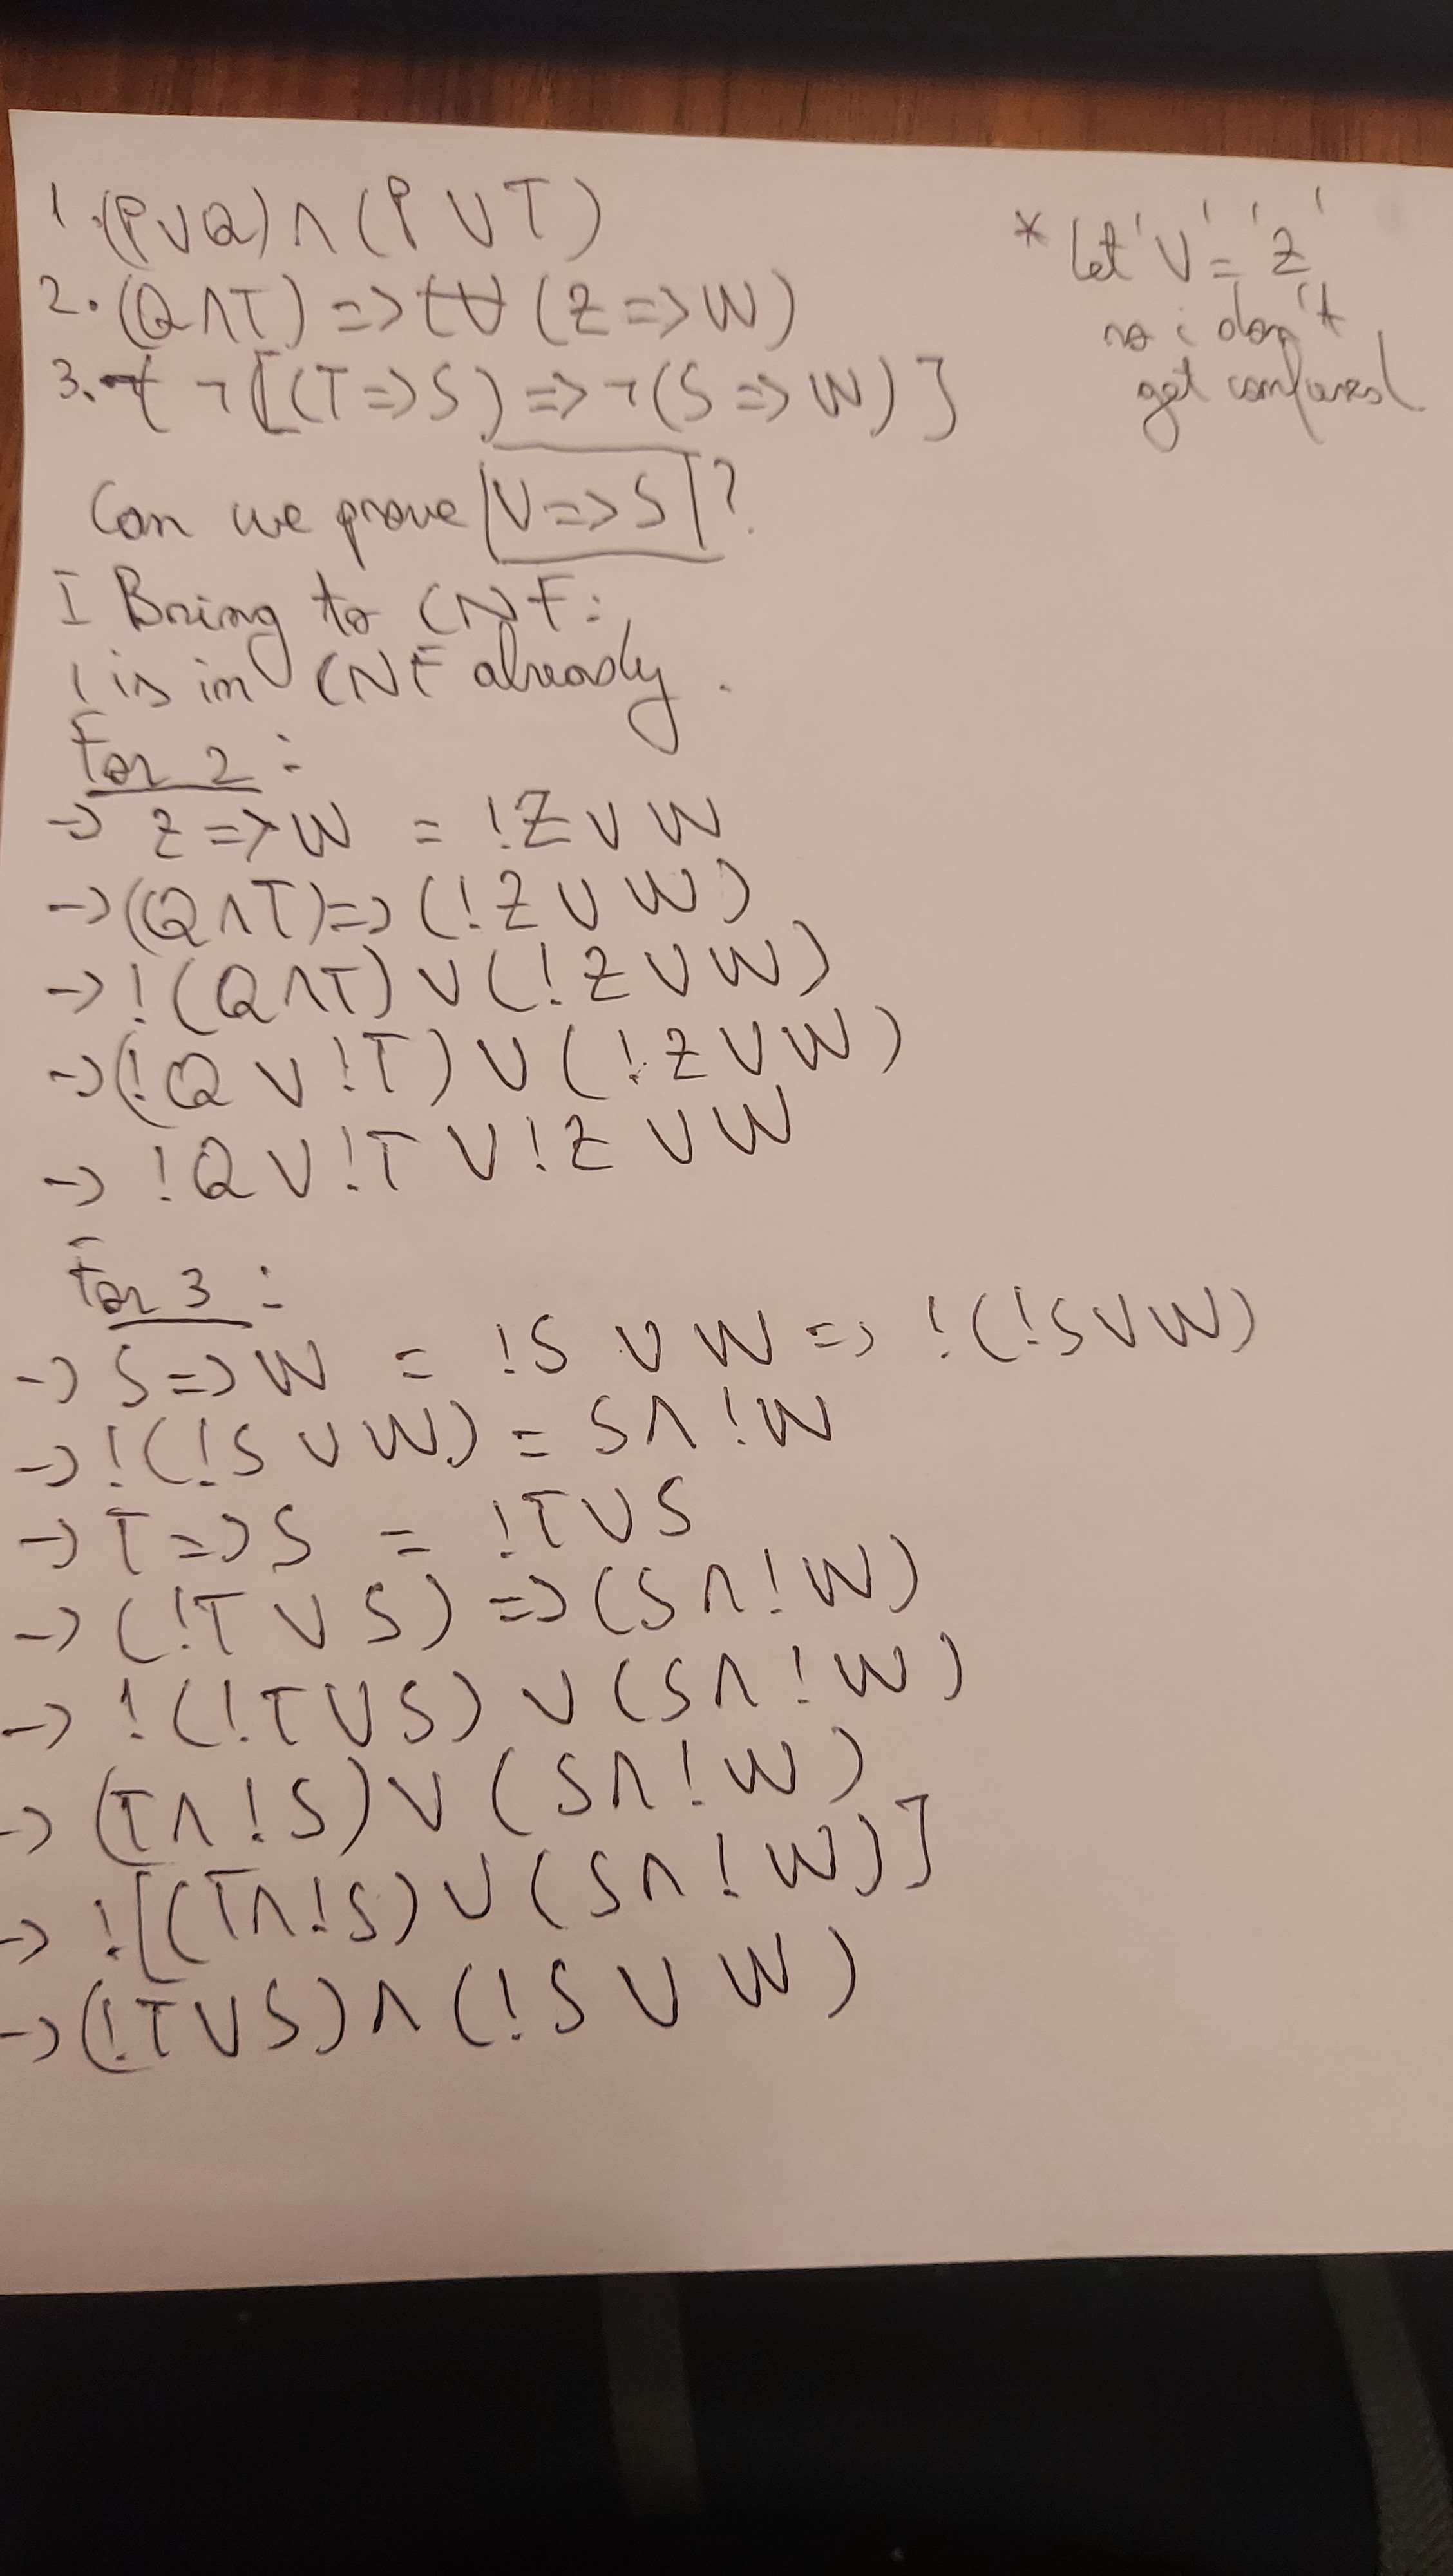 1. (P ∨ Q) ∧ (P ∨ T)
* Let 'V' = 'Z'
so i don't
get confused
2. (Q ∧ T) => (Z => W)
3. ¬[(T => S) => ¬(S => W)]
Can we prove V => S ?
I Bring to CNF:
1 is in CNF already.
For 2:
→ Z => W = !Z ∨ W
→ (Q ∧ T) => (!Z ∨ W)
→ !(Q ∧ T) ∨ (!Z ∨ W)
→ (!Q ∨ !T) ∨ (!Z ∨ W)
→ !Q ∨ !T ∨ !Z ∨ W
For 3:
→ S => W = !S ∨ W => !(!S ∨ W)
→ !(!S ∨ W) = S ∧ !W
→ T => S = !T ∨ S
→ (!T ∨ S) => (S ∧ !W)
→ !(!T ∨ S) ∨ (S ∧ !W)
→ (T ∧ !S) ∨ (S ∧ !W)
→ ![(T ∧ !S) ∨ (S ∧ !W)]
→ (!T ∨ S) ∧ (!S ∨ W)